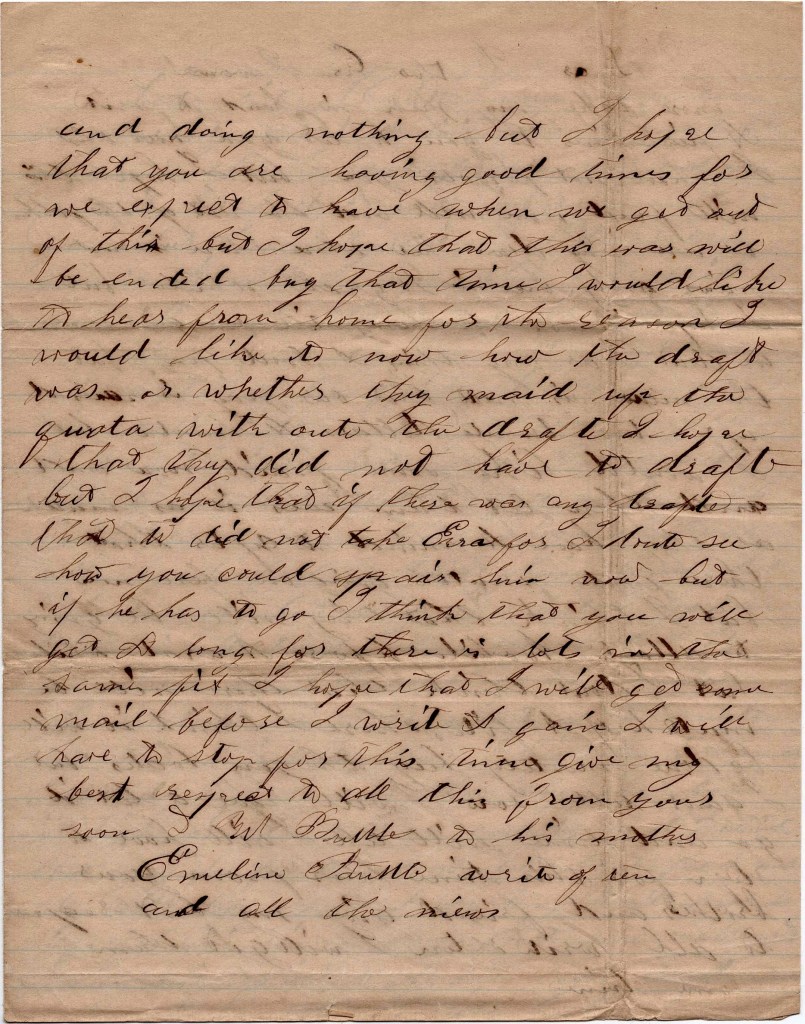 and doing nothing but I hope
that you are having good times for
we expect to have when we get out
of this but I hope that this war will
be ended buy that time I would like
to hear from home for the reason I
would like to now how the draft
was or whether they maid up the
quota with oute the drafte I hope
that they did not have to draft
but I hope that if there was any drafte
that it did not take Ezra for I donte see
how you could spair him now but
if he has to go I think that you will
get A long for there is lots in the
same fix I hope that I will get some
mail before I write A gain I will
have to stop for this time give my
best respect to all this from your
soon W Buttle to his mother
Emeline Buttle write of ten
and all the niews